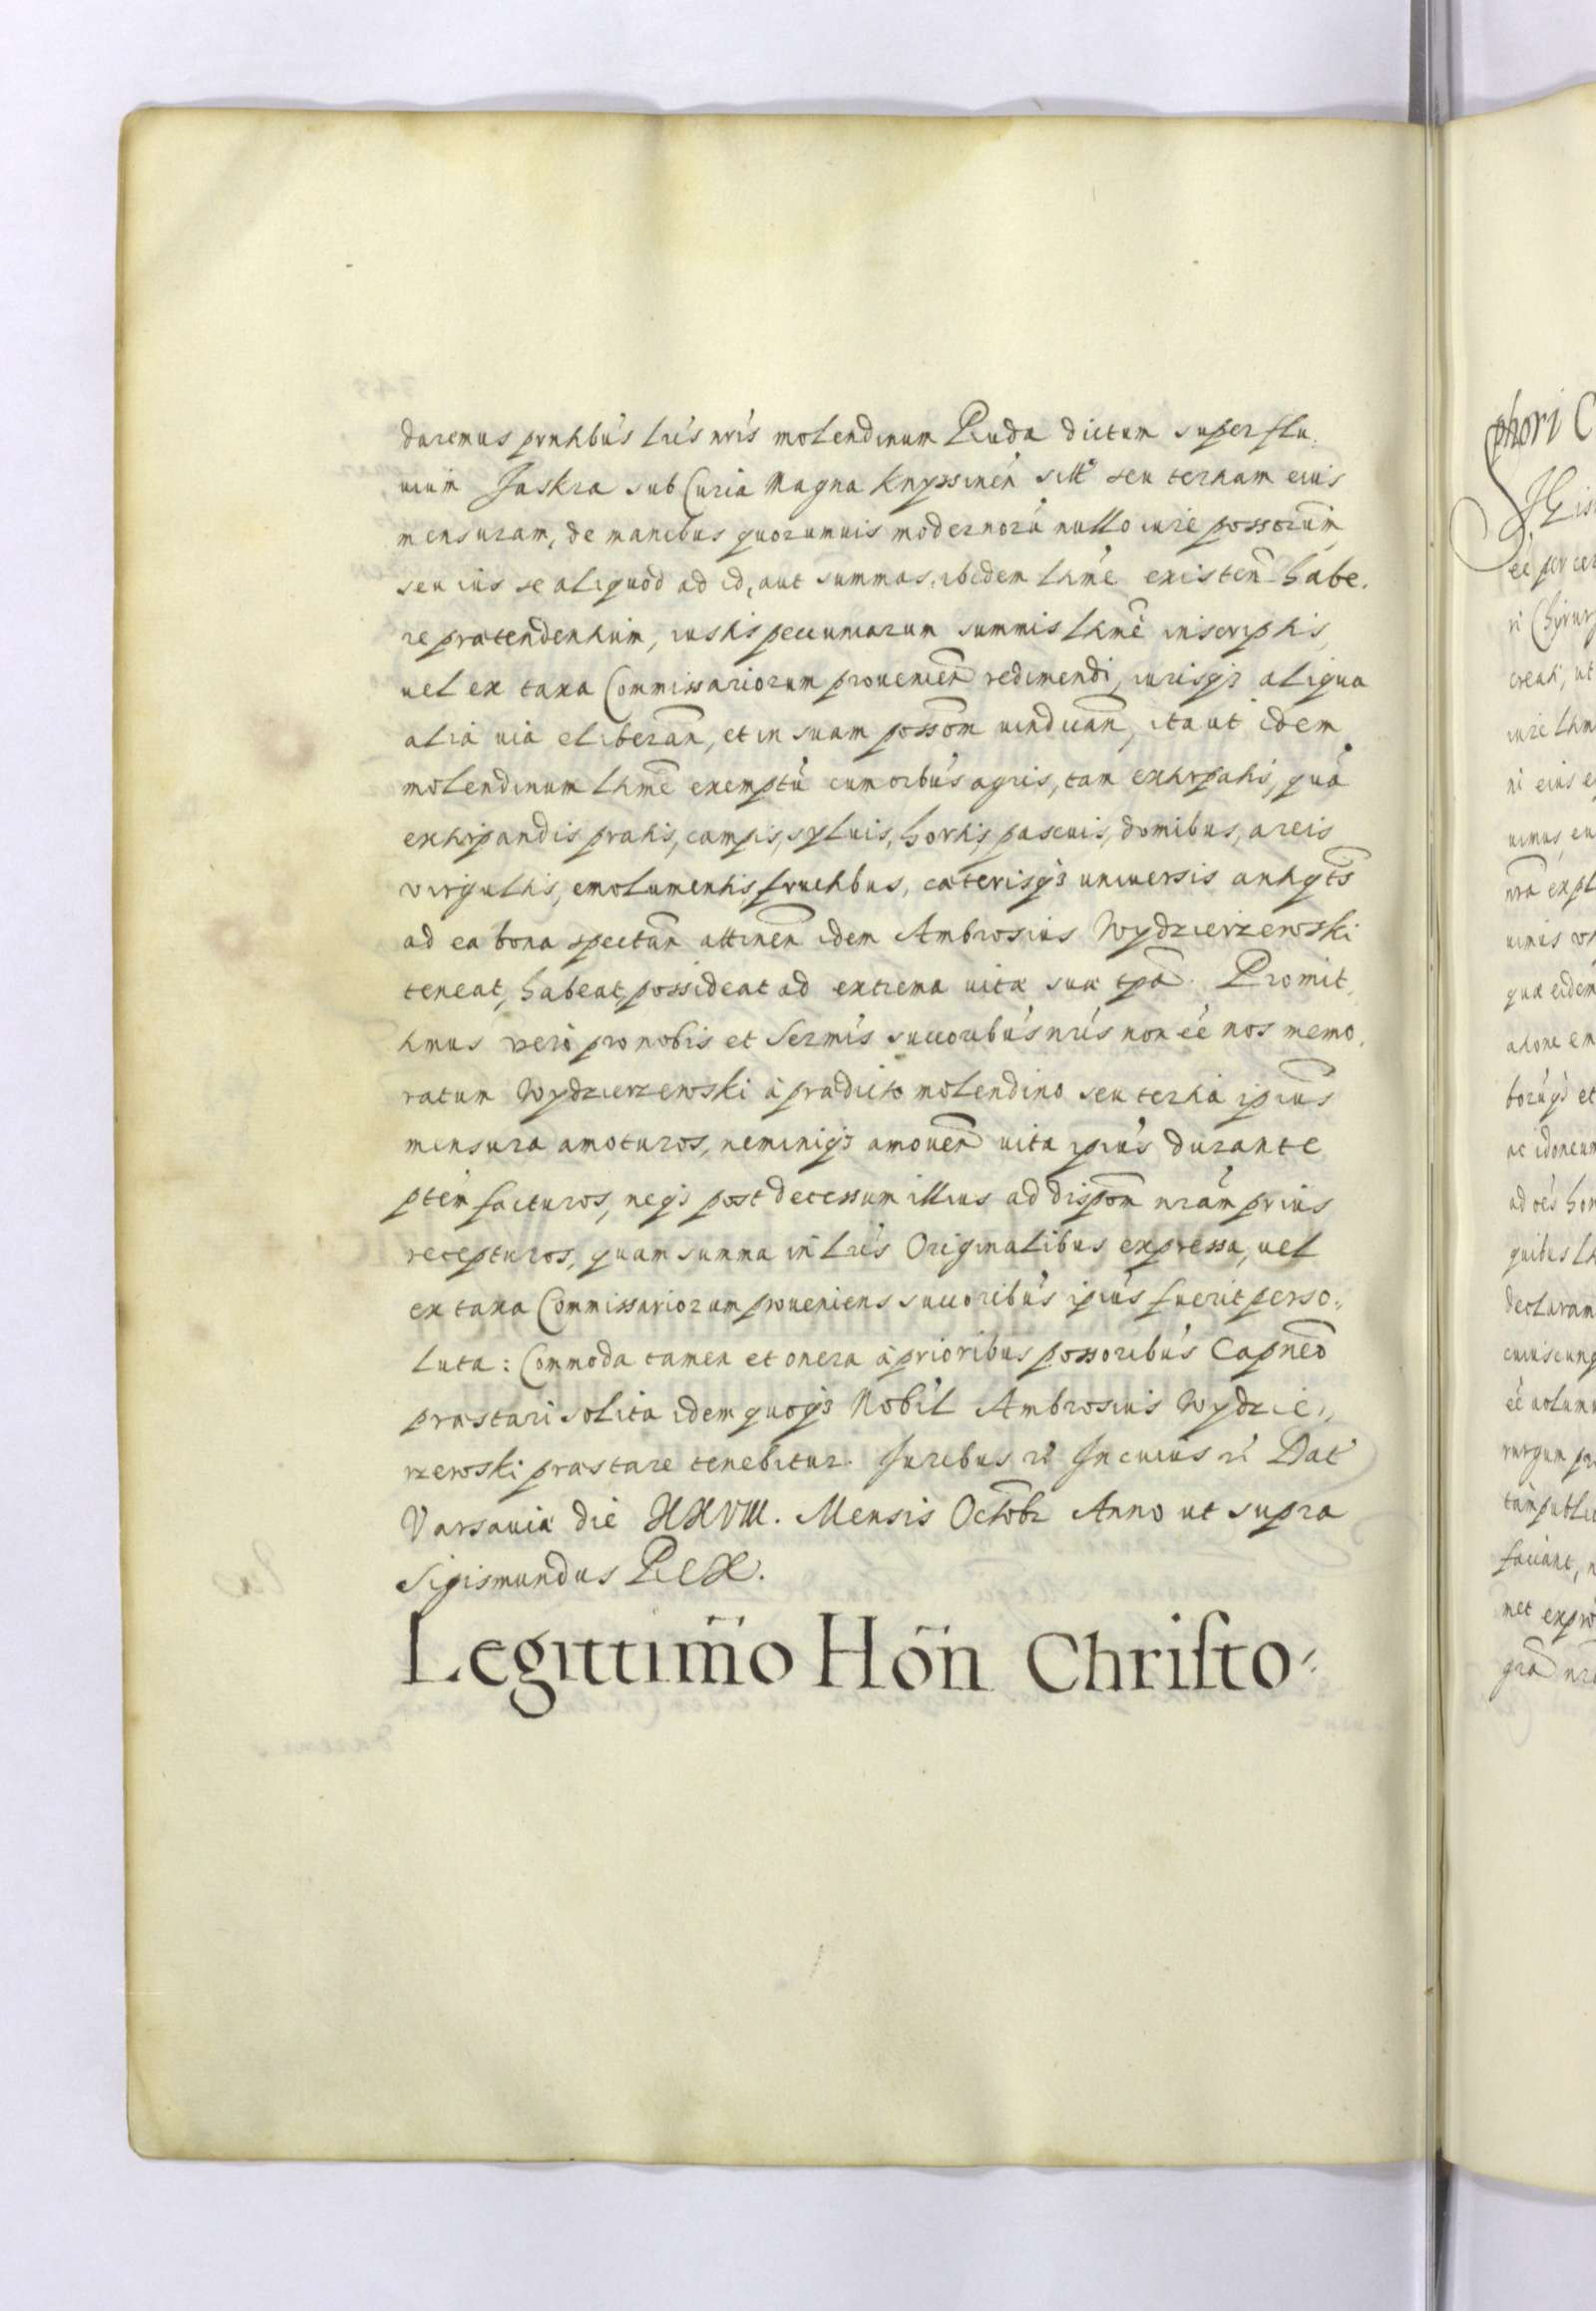 daremus prntibus lris nris molendinum Ruda dictum super flu,
uium Jaskra sub Curia Magna Knyssinen sitt seu tertiam eius
mensuram, de manibus quorumuis modernorũ nullo iure possorum,
seu ius se aliquod ad id, aut summas ibidem ltime existen habe,
re prætendentium, iustis pecuniarum summis ltime inscriptis,
uel ex taxa Commissariorum prouenien redimendi, iurisq3 aliqua
alia uia eliberan, et in suam possom uindican, ita ut idem
molendinum ltime exemptũ cum oibus agris, tam extirpatis, quã
extirpandis pratis, campis, syluis, hortis, pascuis, domibus, areis
virgultis, emolumentis fructibus, cæterisq3 uniuersis antiqts
ad ea bona spectan attinen idem Ambrosius Wydzierzewski
teneat, habeat, possideat ad extrema uitæ suæ tpa. Promit,
timus verò pro nobis et Sermis succoribus nris non eé nos memo,
ratum Wydzierzewski à prædicto molendino seu tertia ipius
mensura amoturos, neminiq3 amouen uita ipius durante
ptem facturos, neq3 post decessum illius ad dispom nram prius
recepturos, quam summa in lris Originalibus expressa, uel
ex taxa Commissariorum proueniens succoribus ipius fuerit perso,,
luta: Commoda tamen et onera à prioribus possoribus Capneo
præstari solita idem quoq3 Nobil Ambrosius Wydzie,,
rzewski præstare tenebitur. Juribus rè In cuius rì Dat
Varsauiæ die XXVIII. Mensis Octobr Anno ut supra
Sigismundus Rex.
Legittimo Hon Christo-